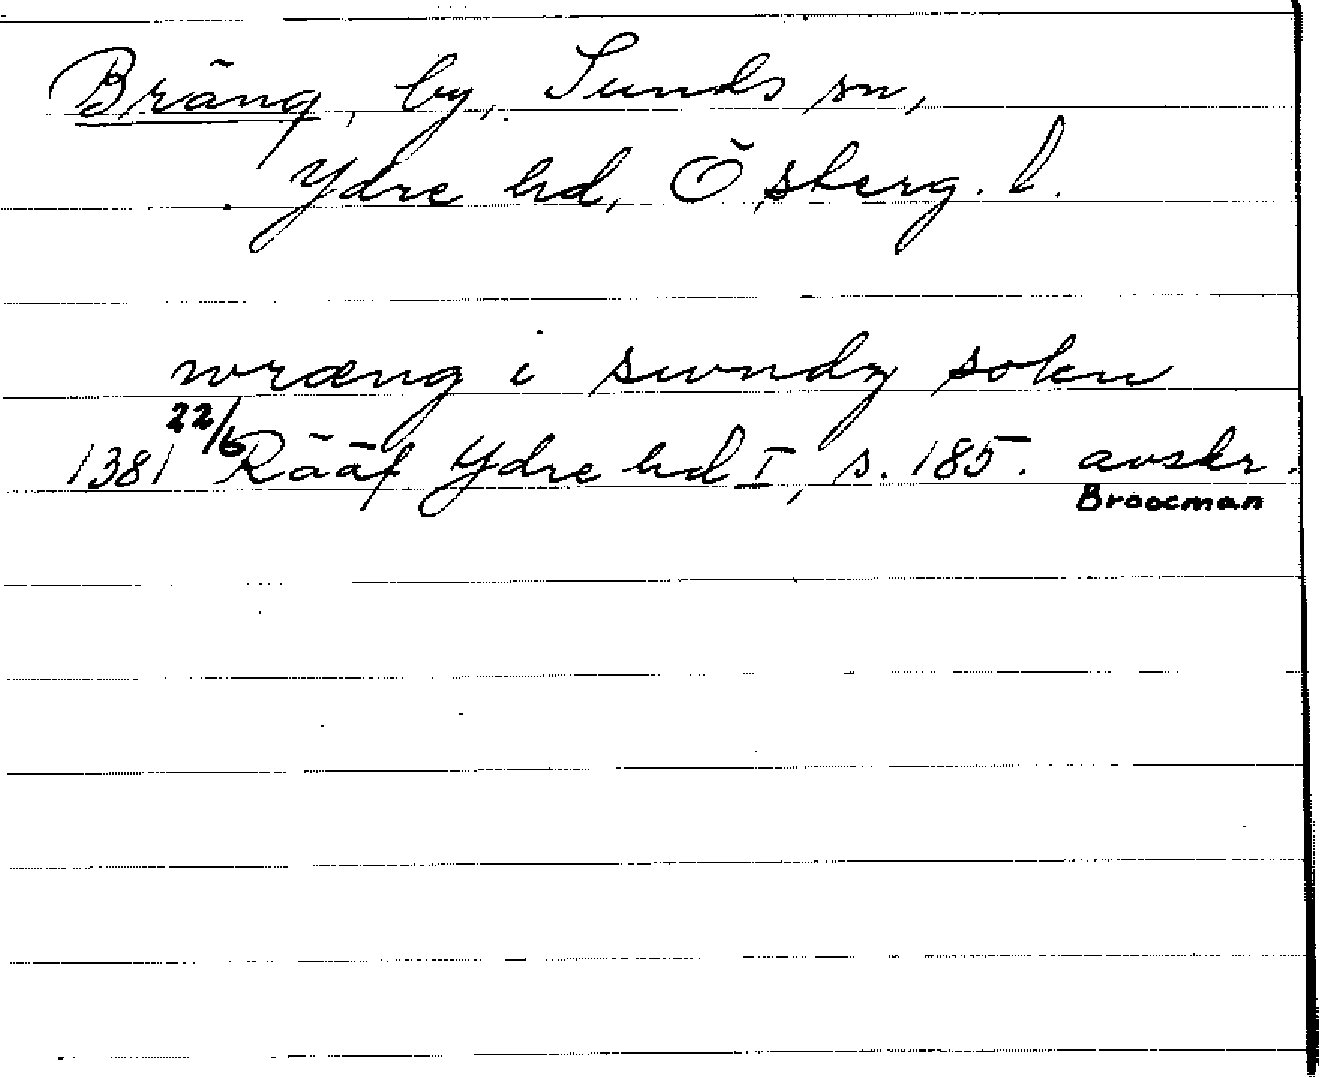 Bräng, by, Sunds sn,
Ydre hd, Österg. l.
wræng i swndz sokn
1381 22/6 Rääf Ydre hd I, s. 185. avskr.
Broocman